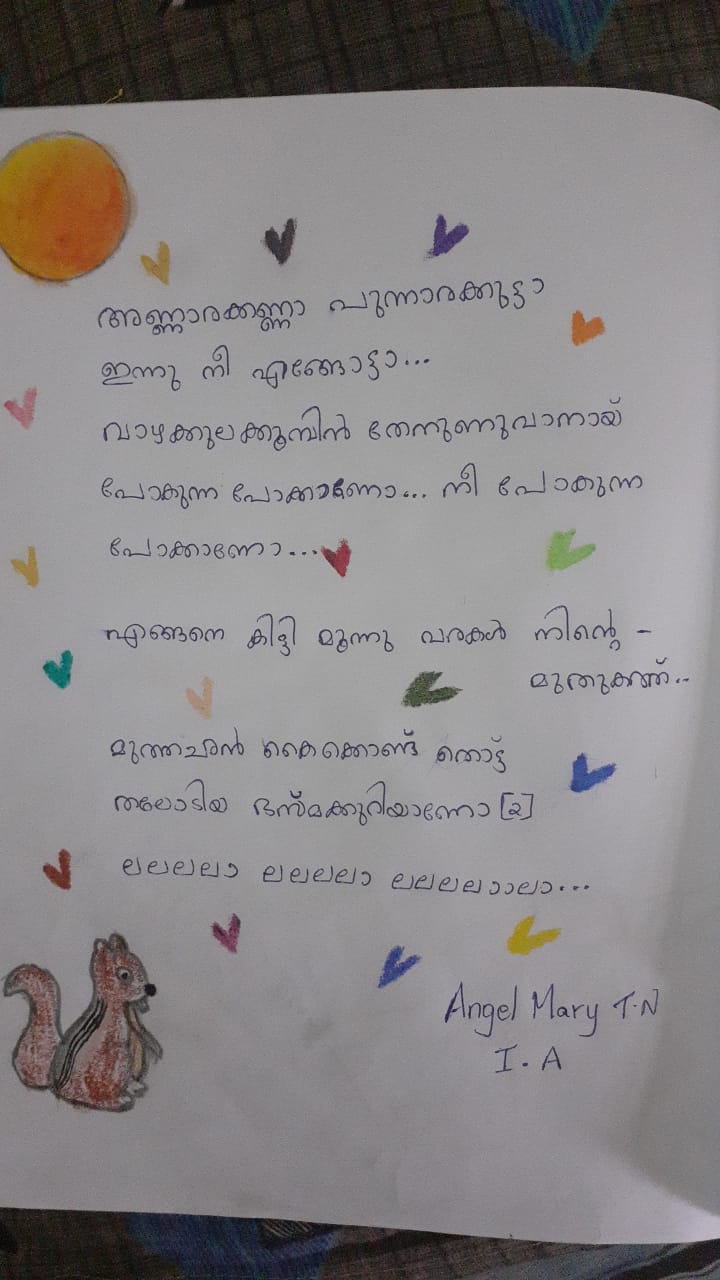 അണ്ണാരക്കണ്ണാ പുന്നാരക്കുട്ടാ
ഇന്നു നീ എങ്ങോട്ടാ...
വാഴക്കുലക്കൂമ്പിൻ തേനുണുവാനായ്
പോകുന്ന പോക്കാണോ... നീ പോകുന്ന
പോക്കാണോ...
എങ്ങനെ കിട്ടി മൂന്നു വരകൾ നിന്റെ -
മുതുകത്ത്..
മുത്തച്ഛൻ കൈക്കൊണ്ട് തൊട്ട്
തലോടിയ ഭസ്മക്കുറിയാണോ [2]
ലലലലാ ലലലലാ ലലലലാാലാ...
Angel Mary T.N
I. A